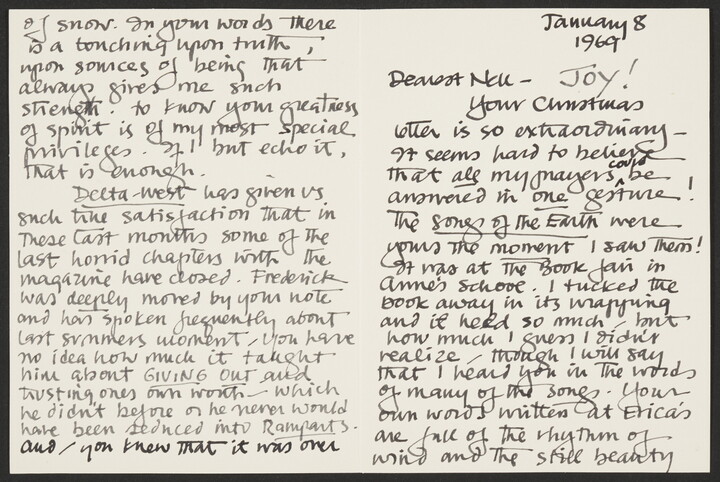 January 8
1969
Dearest Nell - JOY!
Your Christmas
letter is so extraordinary -
It seems hard to believe
that all my prayers could be
answered in one gesture!
The Songs of the Earth were
yours the moment I saw them!
It was at the Book Fair in
Anne's School. I tucked the
book away in its wrapping
and it held so much, but
how much I guess I didn't
realize, though I will say
that I heard you in the words
of many of the songs. Your
own words written at Erica's
are full of the rhythm of
wind and the still beauty
of snow. In your words there
is a touching upon truth,
upon sources of being that
always gives me such
strength. to know your greatness
of spirit is of my most special
privileges. If I but echo it,
that is enough.
Delta-West has given us
such fine satisfaction that in
these last months some of the
last horrid chapters with the
magazine have closed. Frederick
was deeply moved by your note
and has spoken frequently about
last summers moment, you have
no idea how much it taught
him about GIVING OUT and
trusting ones own worth - which
he didn't before or he never would
have been seduced into Ramparts.
And, you knew that it was over